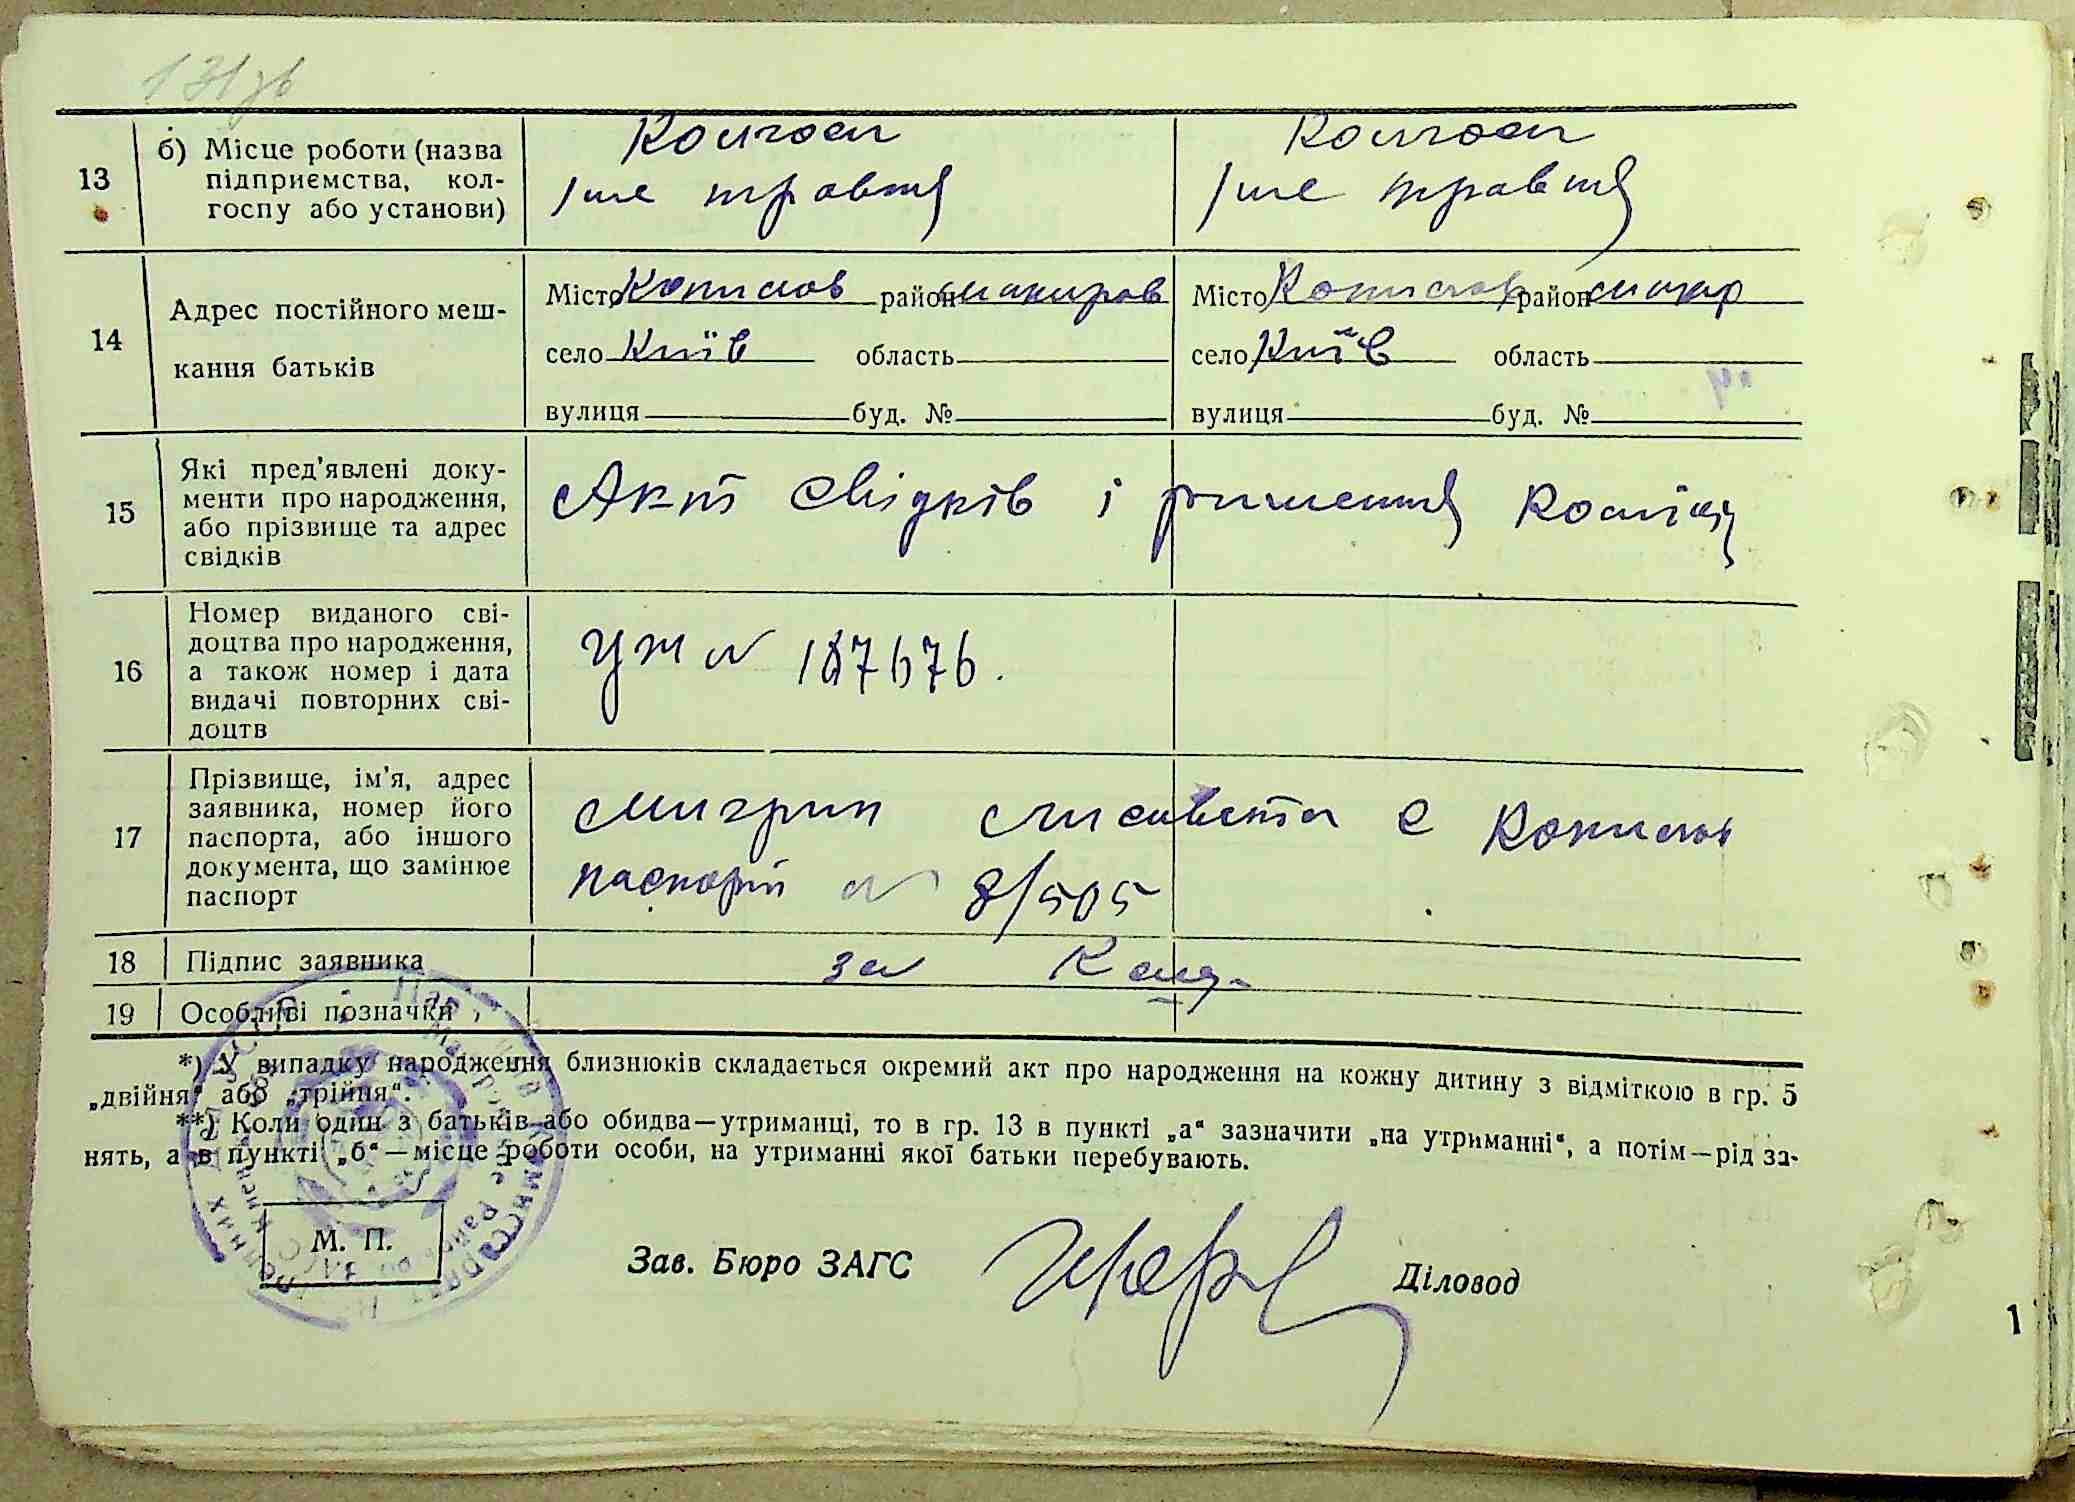 131зв
13
б) Місце роботи (назва
підприємства, кол-
госпу або установи)
Колгосп
1ше травня
Колгосп
1ше травня
14
Адрес постійного меш-
кання батьків
Місто Копилов район Макаров
село Київ область
вулиця буд. №
Місто Копилов район Макар
село Київ область
вулиця буд. №
15
Які пред'явлені доку-
менти про народження,
або прізвище та адрес
свідків
Акт свідків і рішення комісії
16
Номер виданого сві-
доцтва про народження,
а також номер і дата
видачі повторних сві-
доцтв
УЖ № 187676.
17
Прізвище, ім'я, адрес
заявника, номер його
паспорта, або іншого
документа, що замінює
паспорт
Мигрин Лисавета с Копилов
паспорт № 8/505
18
Підпис заявника
за
19
Особливі позначки
*) У випадку народження близнюків складається окремий акт про народження на кожну дитину з відміткою в гр. 5
„двійня“ або „трійня“.
**) Коли один з батьків або обидва—утриманці, то в гр. 13 в пункті „а“ зазначити „на утриманні“, а потім—рід за-
нять, а в пункті „б“—місце роботи особи, на утриманні якої батьки перебувають.
М. П.
Зав. Бюро ЗАГС
Діловод
1